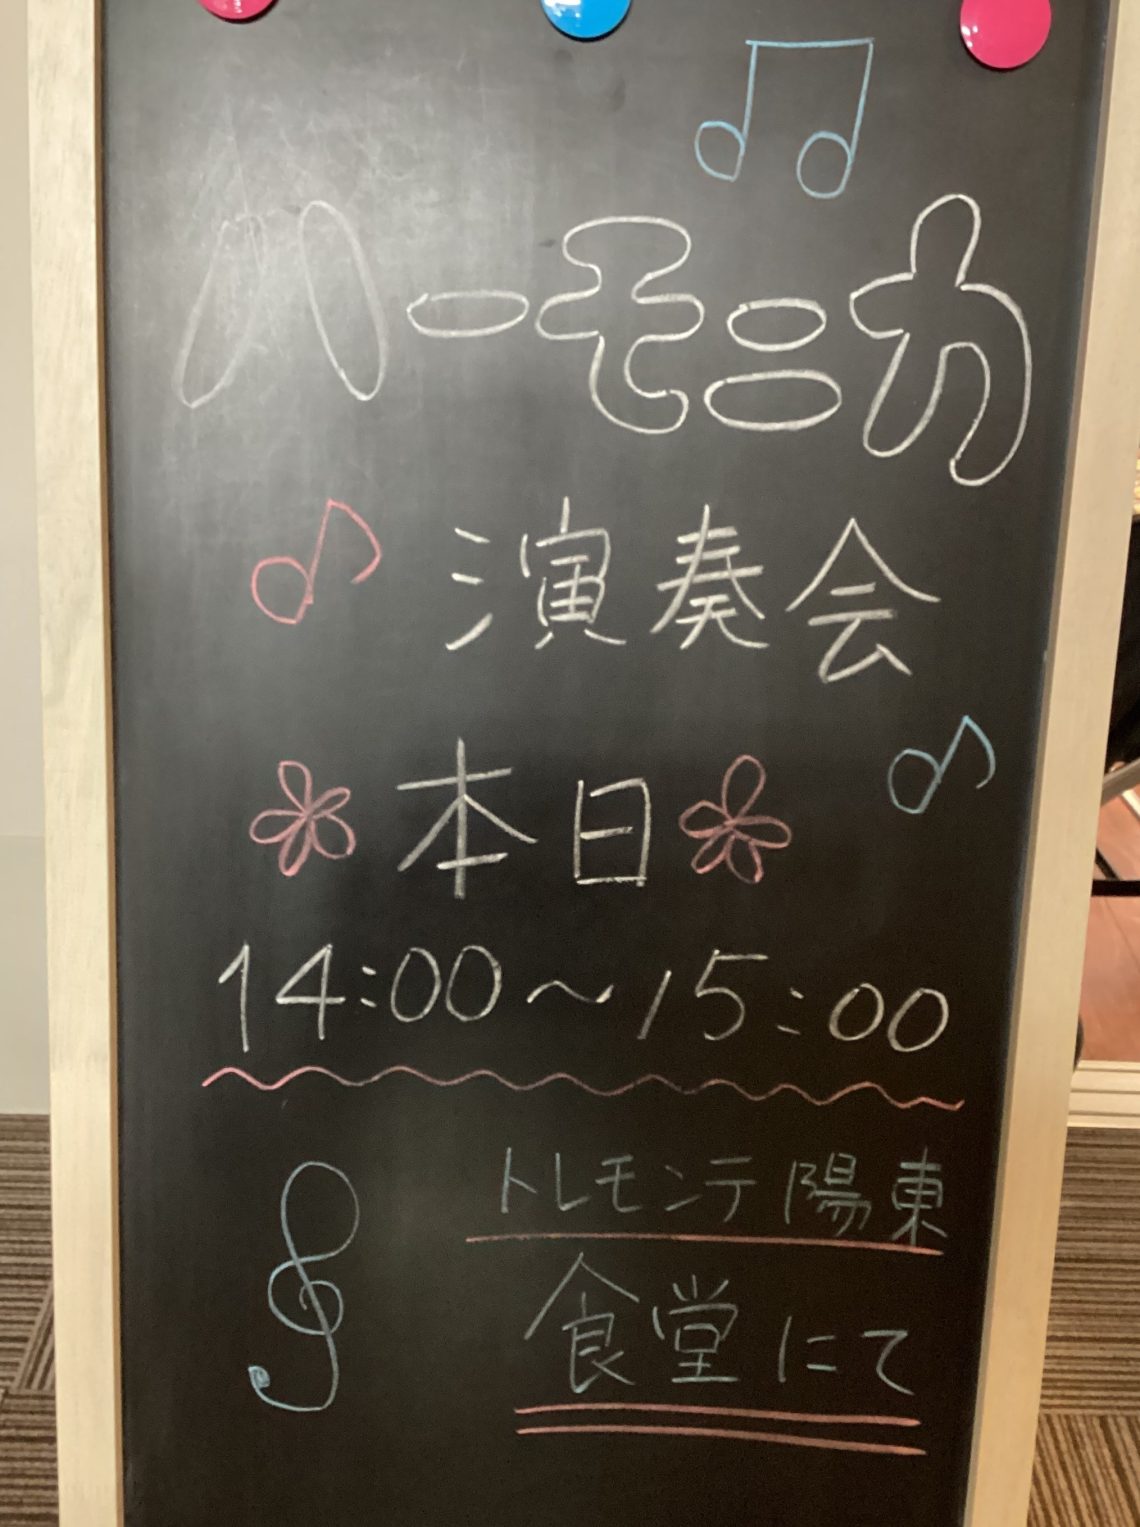 ハーモニカ
演奏会
本日
14:00～15:00
トレモンテ陽東
食堂にて